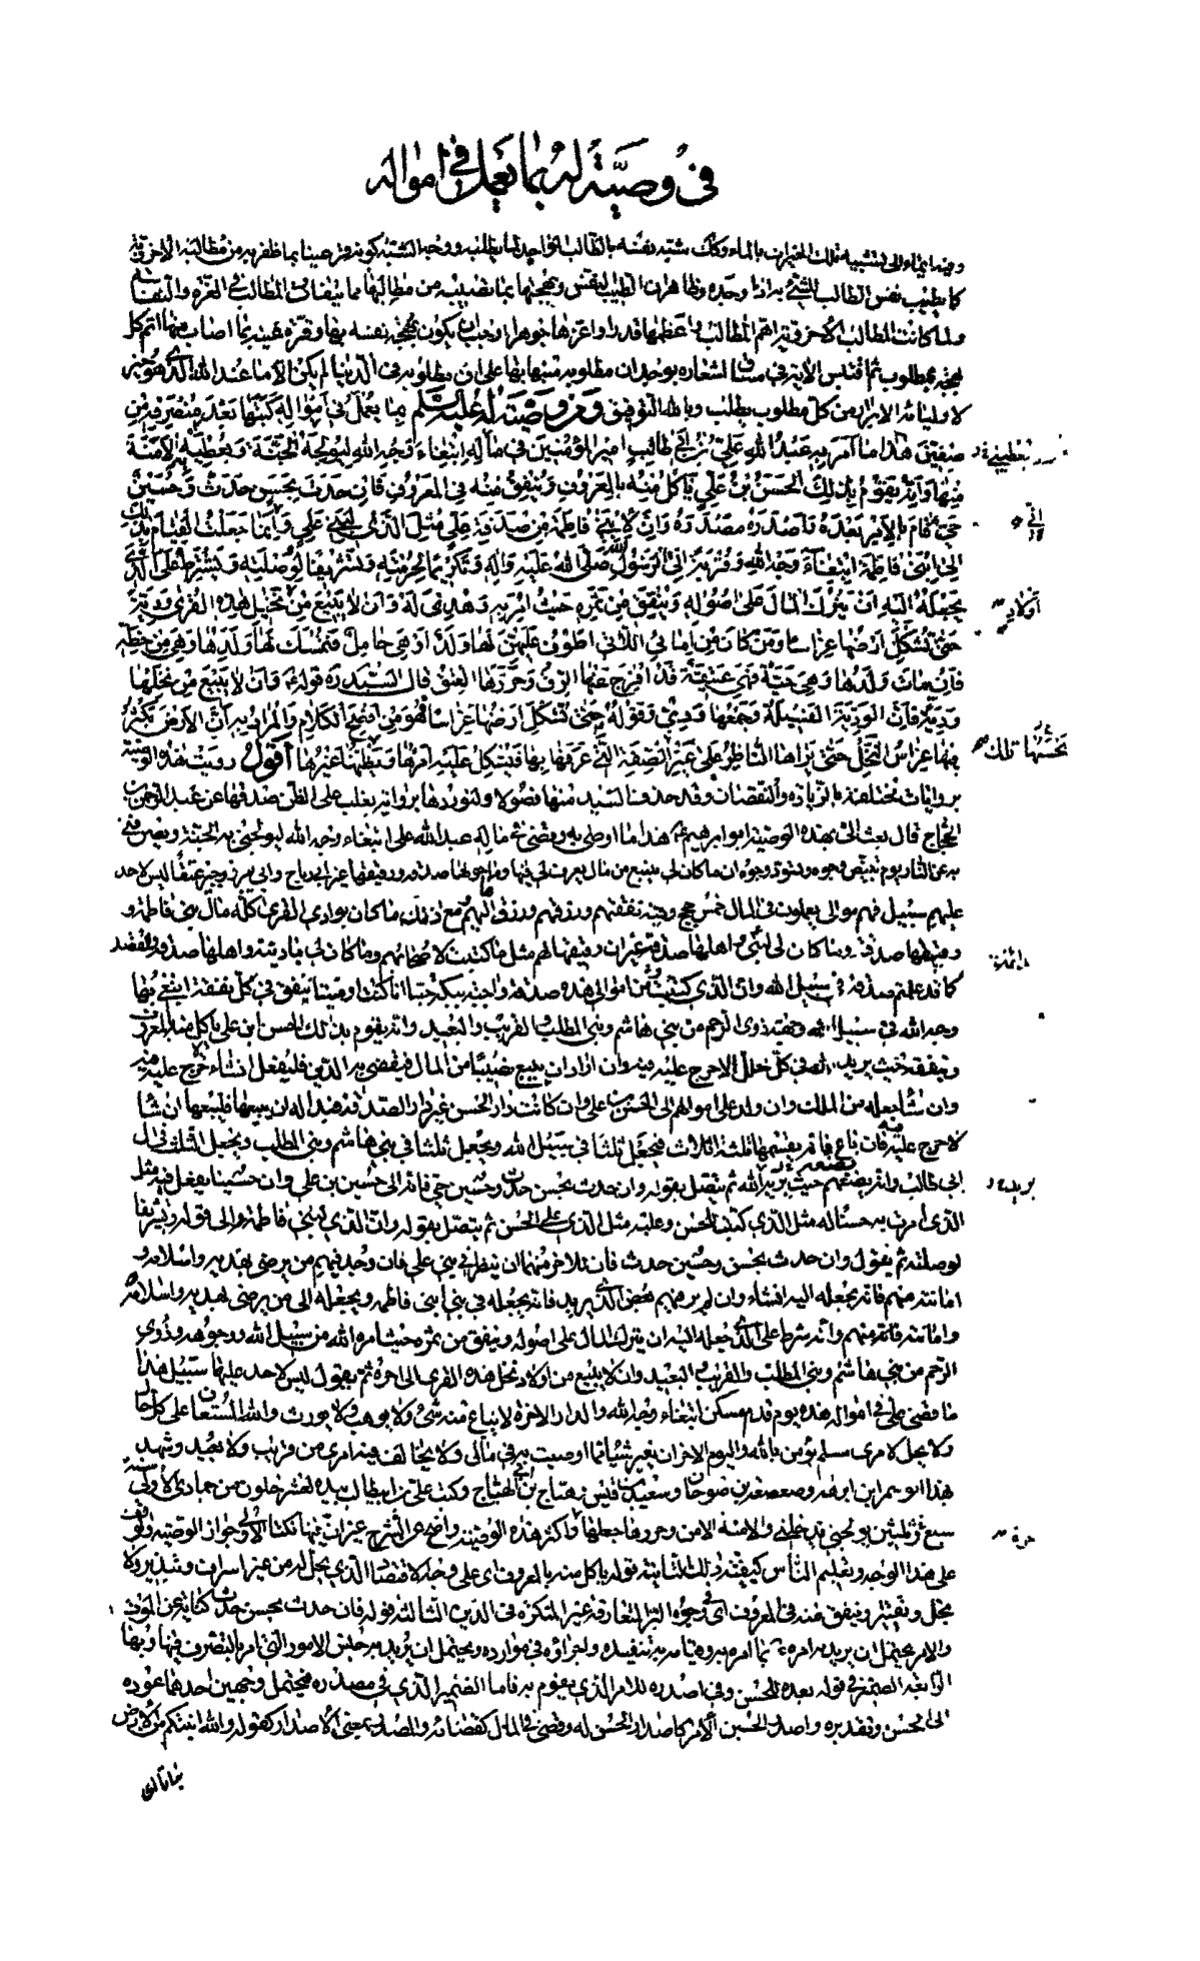 في وصيّة له بما يعمل في امواله
وجه ايماء الى تشبيه تلك الخيرات بالماء وكذلك شبّه نفسه بالطالب الواجد لما يطلبه ووجه الشبه كونه قرير عينا بما ظفر به من مطالبه الاخرويّة
كما يطيب نفس الطالب للشئ به اذا وجده وظاهر ان الطيب النفس وبهجتها بما تصيبه من مطالبها مما يتفاوت المطالب في العزة والنفاسة
ولما كانت المطالب الاخروية اهم المطالب واعظمها قدرا واعزها جوهرا وجب ان يكون بهجة نفسه بها وقرة عينه بما اصاب منها اتم كل
بهجة بمطلوب ثم اقتبس الآية في مساق اشعاره بوجدان مطلوبه منبها بها على ان مطلوبه في الدنيا لم يكن الا ما عند الله الذي هو خير
لاوليائه الابرار من كل مطلوب يطلب وبالله التوفيق ومن وصيّة له عليه السلم بما يعمل في امواله كتبها بعد منصرفه من
صفين هذا ما امر به عبد الله علي بن ابي طالب امير المؤمنين في ماله ابتغاء وجه الله ليولجه الجنّة ويعطيه الامنة
منها وانّه يقوم بذلك الحسن بن علي يأكل منه بالمعروف وينفق منه في المعروف فان حدث بحسن حدث وحسين
حيّ قام بالامر بعده واصدره مصدره وان لابني فاطمة من صدقة علي مثل الذي لبني علي واني انما جعلت القيام بذلك
الى ابني فاطمة ابتغاء وجه الله وقربة الى رسول الله صلى الله عليه واله وتكريما لحرمته وتشريفا لوصلته ويشترط على الذي
يجعله اليه ان يترك المال على اصوله وينفق من ثمره حيث امر به وهدي له وان لا يبيع من نخيل هذه القرى وديّة
حتى تشكل ارضها غراسا ومن كان من امائي اللاتي اطوف عليهن لها ولد او هي حامل فتمسك على ولدها وهي من حظه
فان مات ولدها وهي حيّة فهي عتيقة قد افرج عنها الرق وحررها العتق قال السيد ره قوله ع وان لا يبيع من نخلها
وديّة فان الوديّة الفسيلة وجمعها ودي وقوله حتى تشكل ارضها غراسا فهو من افصح الكلام والمراد به ان الارض يكثر
فيها غراس النخل حتى يراها الناظر على غير الصفة التي عرفها بها فيشكل عليه امرها ويظنها غيرها اقول رويت هذه الوصية
بروايات مختلفة بالزيادة والنقصان وقد حذف السيد منها فصولا ولنوردها برواية يغلب على الظن صدقها عن عبد الرحمن بن
الحجاج قال بعث الي بهذه الوصية ابو ابرهيم ع هذا ما اوصى به وقضى في ماله عبد الله علي ابتغاء وجه الله ليولجني به الجنة ويصرفني
به عن النار يوم تبيض وجوه وتسود وجوه ان ما كان لي بينبع من مال يعرف لي فيها وما حولها صدقة ورقيقها غير ابي رباح وابي نيزر وجبير عتقا ليس لاحد
عليهم سبيل فهم موالي يعملون في المال خمس حجج وفيه نفقتهم ورزقهم ورزق اهاليهم ومع ذلك ما كان بوادي القرى كله مال بني فاطمة و
ورقيقها صدقة وما كان لي واهلها صدقة غير ان رقيقها لهم مثل ما كتبت لاصحابهم وما كان لي باذينة واهلها صدقة والقصد
كما قد علم صدقة في سبيل الله وان الذي كتبت من اموالي هذه صدقة واجبة بتلة حيا انا كنت او ميتا ينفق في كل نفقة ابتغي بها
وجه الله في سبيل الله وجهه ذوي الرحم من بني هاشم وبني المطلب القريب والبعيد وانه يقوم بذلك الحسن ابن علي يأكل منه بالمعروف
وينفقه حيث يريد الله في كل حلال لا حرج عليه فيه وان اراد ان يبيع نصيبا من المال فيقضي به الدين فليفعل ان شاء لا حرج عليه فيه
وان شاء جعله من الملك وان ولد علي اموالهم الى الحسن بن علي وان كانت دار الحسن غير دار الصدقة فبدا له ان يبيعها فليبعها ان شاء
لا حرج عليه فيه فان باع فانه يقسمها ثلثة اثلاث فيجعل ثلثا في سبيل الله ويجعل ثلثا في بني هاشم وبني المطلب ويجعل الثلث في ال
ابي طالب وانه يضعه فيهم حيث يريد الله ثم يتصل بقوله وان حدث بحسن حدث وحسين حي فانه الى حسين بن علي وان حسينا يفعل فيه مثل
الذي امرت به حسنا له مثل الذي كتبت للحسن وعليه مثل الذي على الحسن ثم يتصل بقوله وان الذي لبني فاطمة والى قوله وتشريفا
لوصلته ثم يقول وان حدث بحسن وحسين حدث فان للاخر منهما ان ينظر في بني علي فان وجد فيهم من يرضى بهديه واسلامه و
امانته منهم فانه يجعله اليه ان شاء وان لم ير فيهم بعض الذي يريد فانه يجعله في بني ابني فاطمة ويجعله الى من يرضى بهديه واسلامه
وامانته منهم وانه شرط على الذي جعله اليه ان يترك المال على اصوله وينفق من ثمره حيث امره الله من سبيل الله ووجوهه وذوي
الرحم من بني هاشم وبني المطلب والقريب البعيد وان لا يبيع من اولاد نخل هذه القرى الى اخره ثم يقول ليس لاحد عليها سبيل هذا
ما قضى علي في امواله هذه يوم قدم مسكن ابتغاء وجه الله والدار الاخرة لا يباع منه شئ ولا يوهب ولا يورث والله المستعان على كل حال
ولا يحل لامرئ مسلم يؤمن بالله واليوم الاخر ان يغير شيئا مما اوصيت به في مالي ولا يخالف فيه امري من قريب ولا بعيد وشهد
هذا ابو سمر ابن ابرهة وصعصعة بن صوحان وسعيد بن قيس وهياج بن ابي الهياج وكتب علي بن ابيطالب بيده لعشر خلون من جمادى الاولى سنة
سبع وثلثين يولجني يدخلني والامنة الامن
على هذا الوجه وتعليم الناس كيفيّة ذلك الثانية قوله يأكل منه بالمعروف اى على وجه الاقتصاد الذي يحل له من غير اسراف وتبذير ولا
بخل وتقتير وينفق منه في المعروف اى في وجوه البر المتعارفة غير المنكرة في الدين الثالثة قوله فان حدث بحسن حدث كناية عن الموت
والامر يحتمل ان يريد به امره بما امره به وقيامه به تنفيذه واجراؤه في موارده ويحتمل ان يريد به جنس الامور التي امر بالتصرف فيها وبها
الرابعة الضمير في قوله بعده للحسن وفي اصدره للامر الذي يقوم به فاما الضمير الذي في مصدره فيحتمل وجهين احدهما عوده
الى الحسن وتقديره واصدر الحسين الامر كاصدار الحسن له وقضى في المال كقضائه والمصدر بمعنى الاصدار كقوله والله انبتكم من الارض
نباتا اى